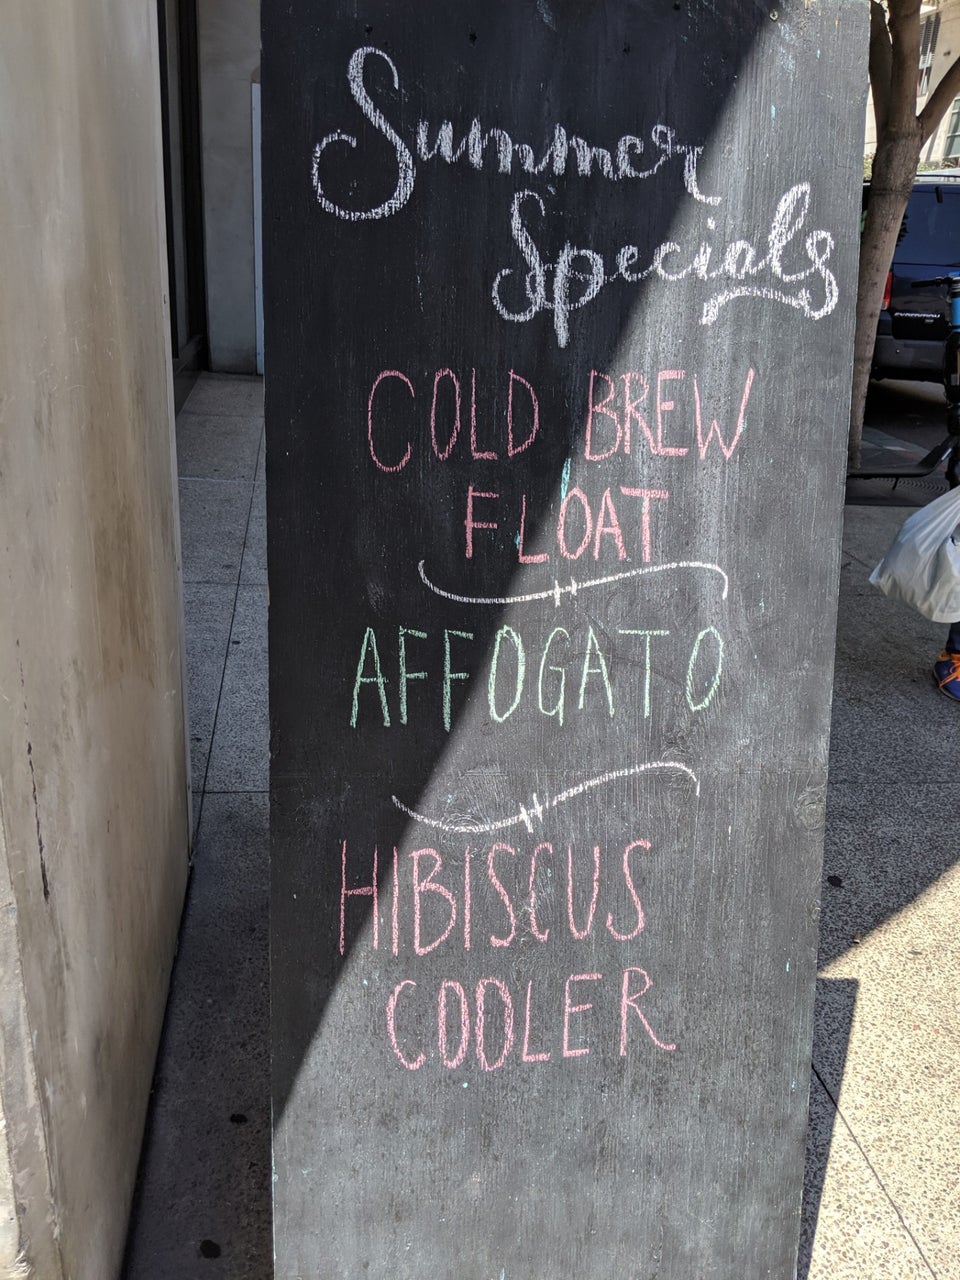 Summer
Specials
COLD BREW
FLOAT
AFFOGATO
HIBISCUS
COOLER